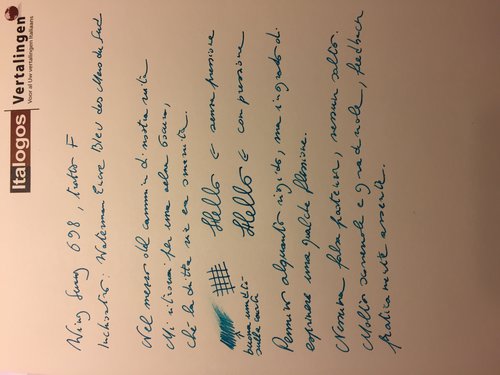 Italogos Vertalingen
Voor al Uw vertalingen Italiaans
Wing Sung 698, tratto F
Inchiostro: Waterman Encre Bleu des Mers du Sud
Nel mezzo del cammin di nostra vita
Mi ritrovai per una selva oscura,
ché la diritta via era smarrita.
Hello ← senza pressione
buona umidità
sulla carta
Hello ← con pressione
Pennino alquanto rigido, ma in grado di
esprimere una qualche flessione.
Nessuna falsa partenza, nessun salto.
Molto scorrevole e gradevole, feedback
praticamente assente.